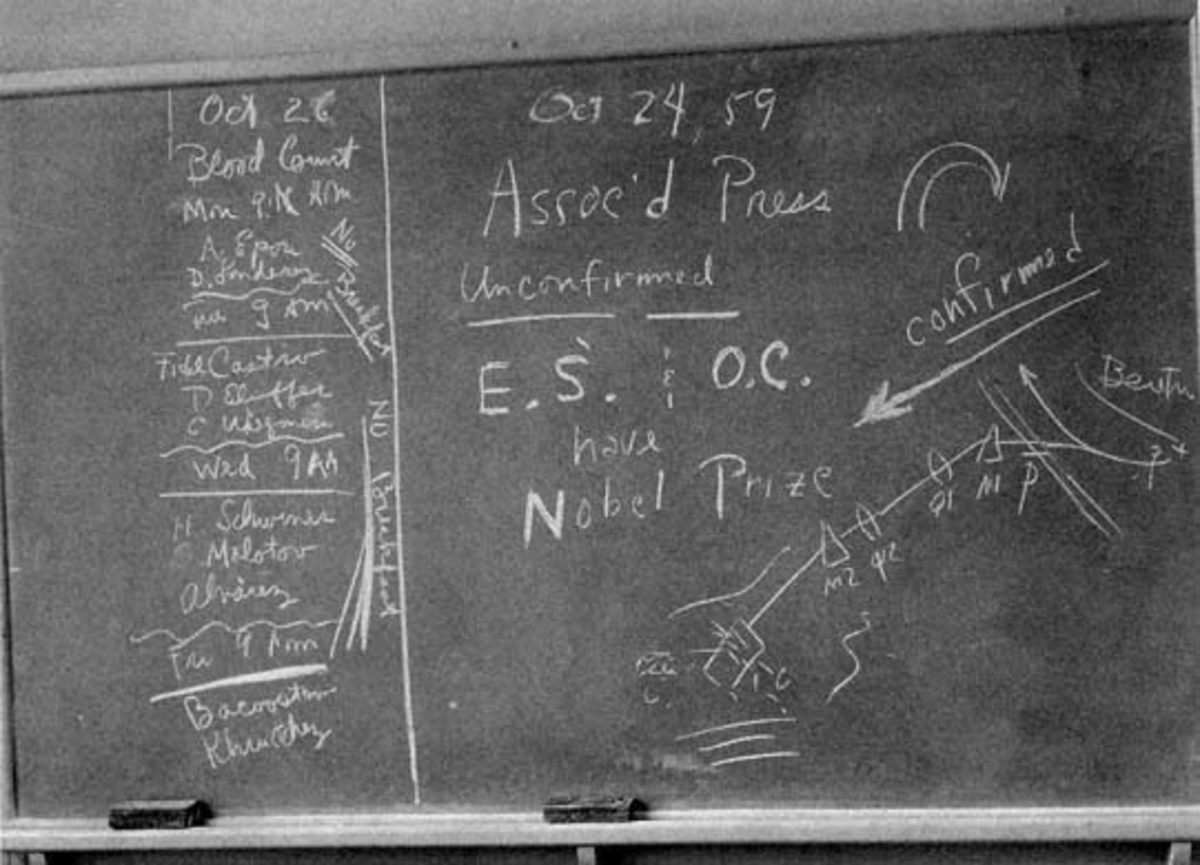 Oct 26
Blood Count
Mon 9 AM
No Breakfast
A. Epon
Tue 9 AM
Fidel Castro
D
C
Wed 9 AM
No Breakfast
H
Molotov
Alvarez
Fri 9 Am
Oct 24, 59
Assoc'd Press
Unconfirmed
confirmed
E.S. & O.C.
have
Nobel Prize
Q1 M1 P
M2 Q2
C